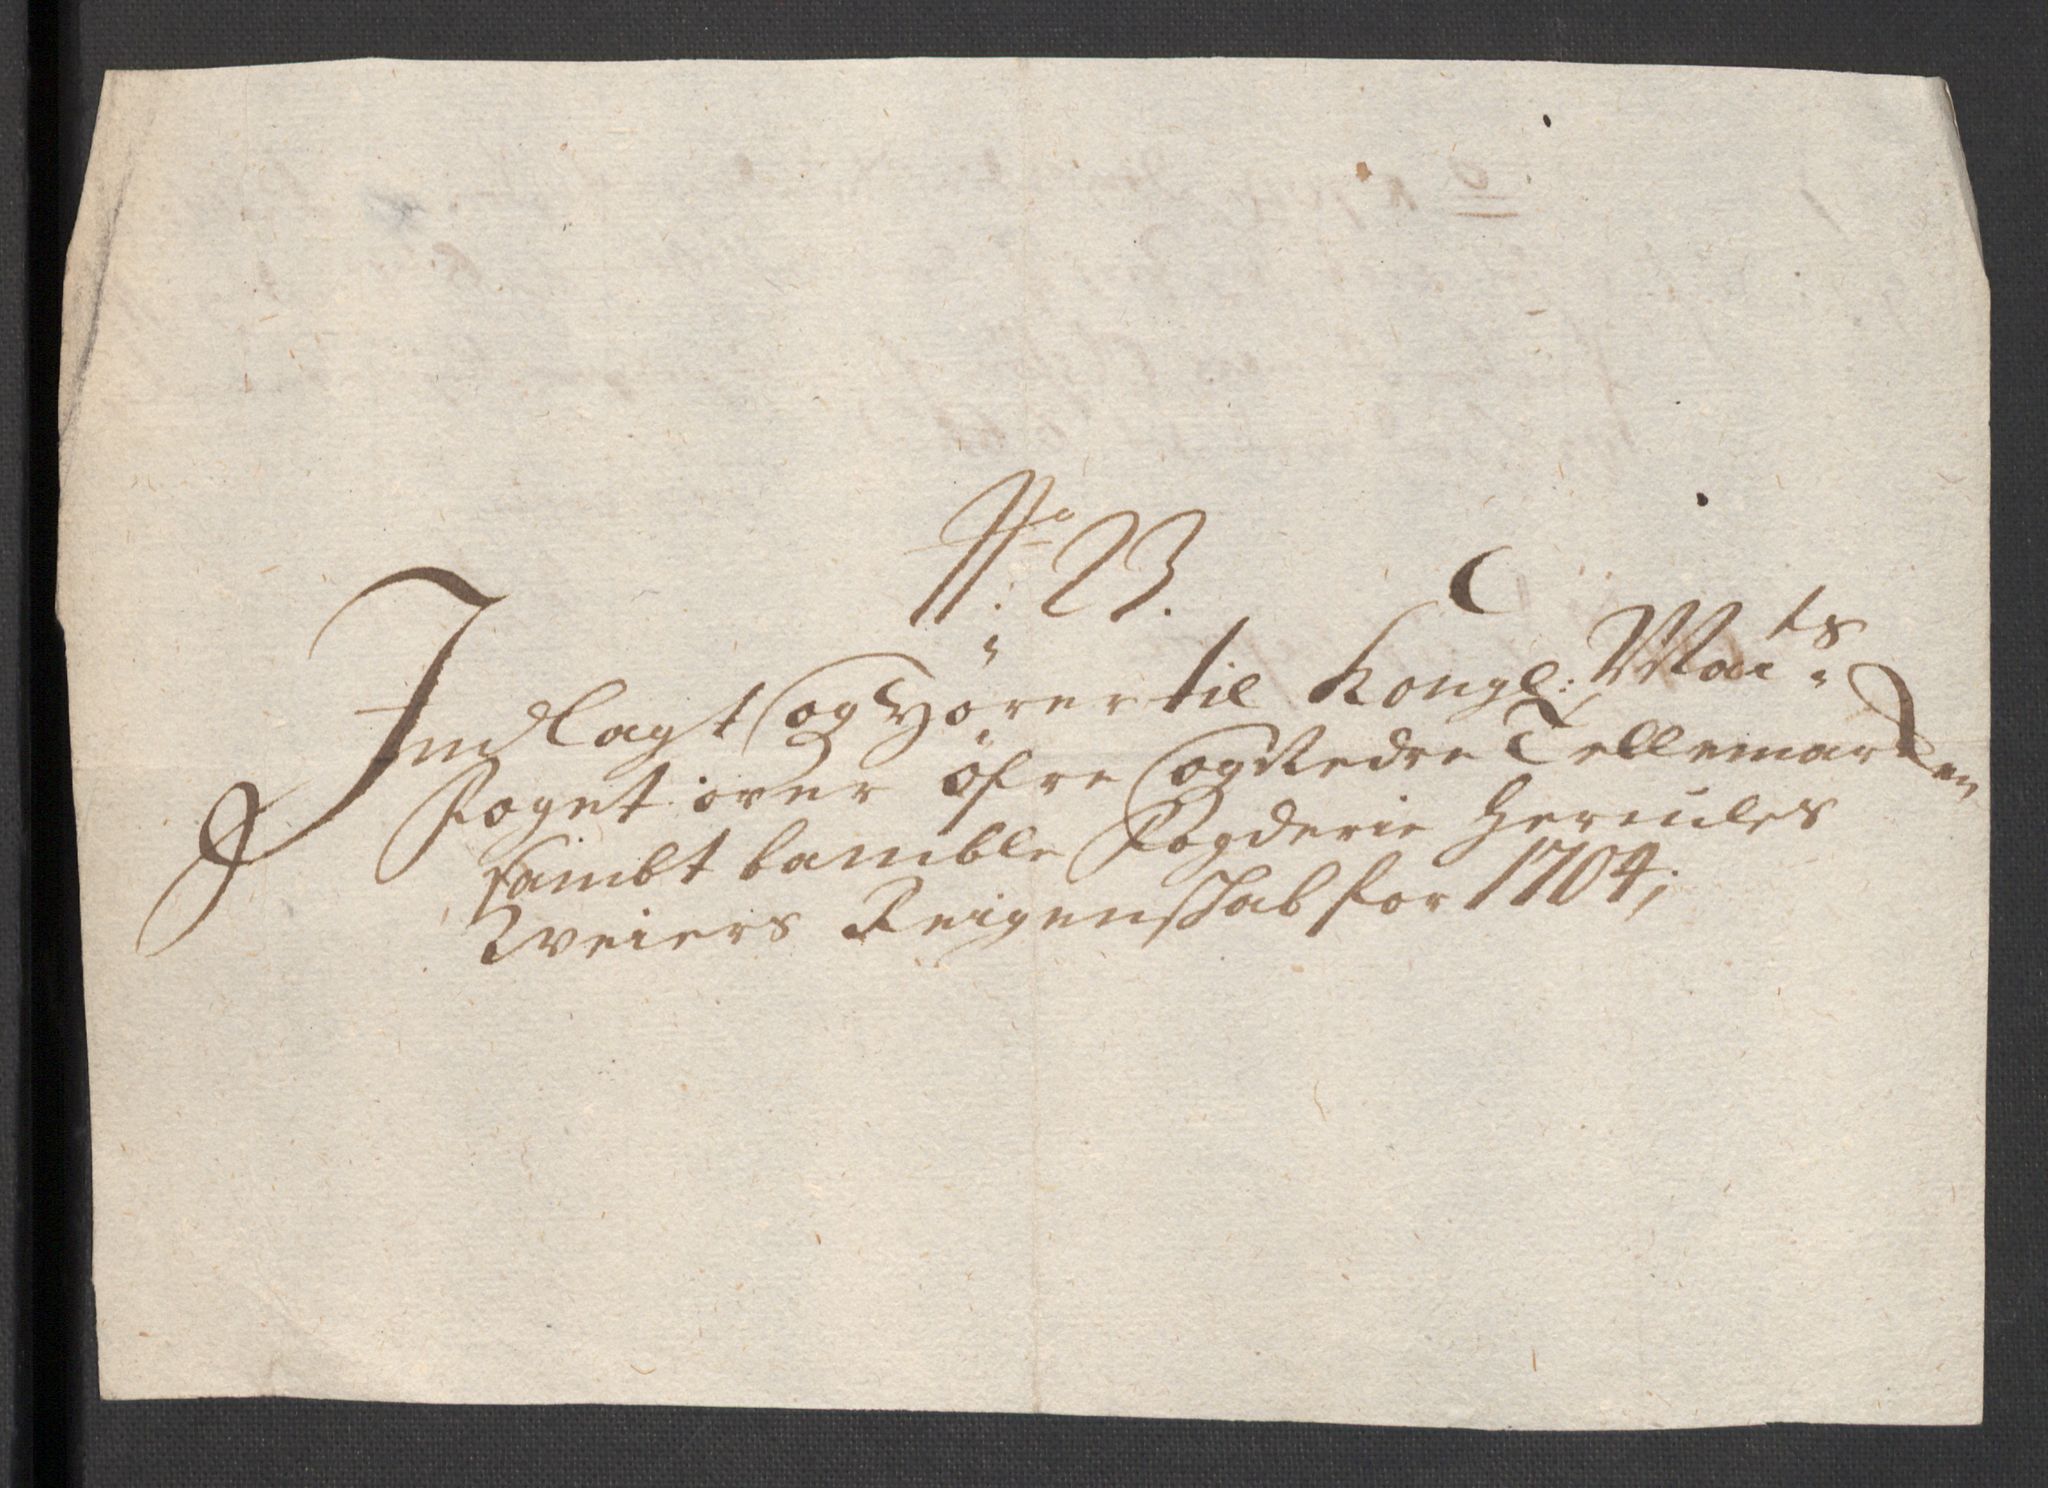 No: 23.
Indlagt og Hører til Kongl: Maits
Foget over öfre og Nedre Tellemarken
sambt bamble Fogderie Hercules
Weiers Reigenskab for 1704;